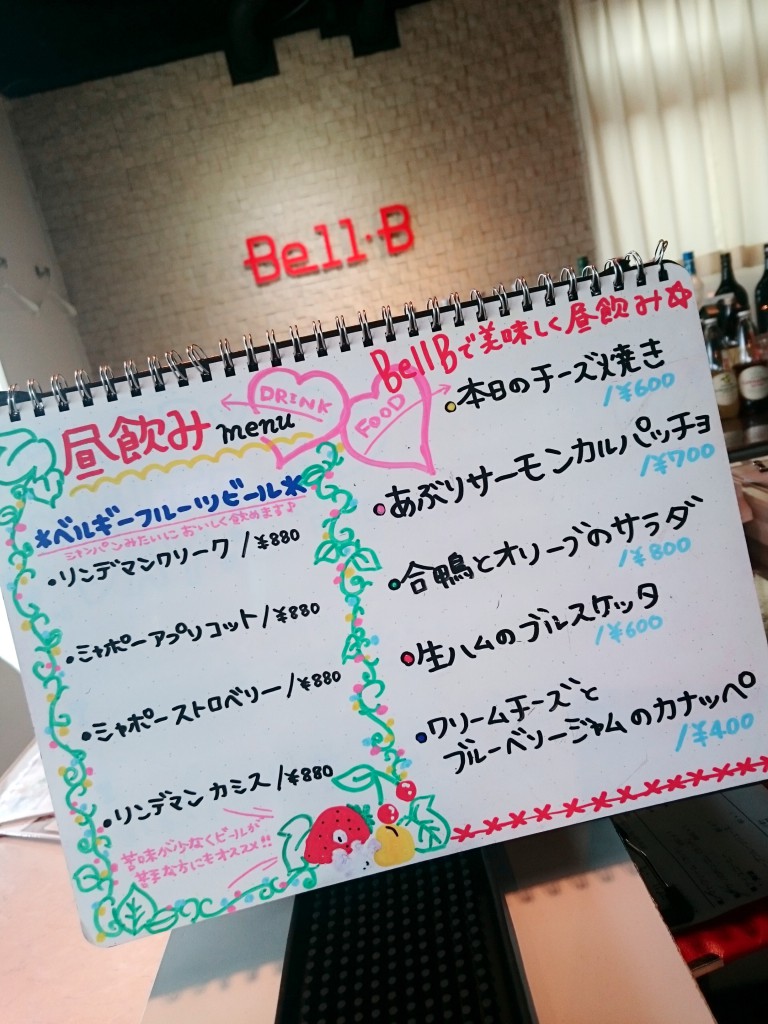 Bell·B
昼飲み menu
DRINK
*ベルギーフルーツビール*
シャンパンみたいにおいしく飲めます♪
・リンデマンクリーク /¥880
・シャポーアプリコット/¥880
・シャポーストロベリー/¥880
・リンデマンカシス/¥880
苦味が少なくビールが
苦手な方にもオススメ!!
FOOD
BellBで美味しく昼飲み☆
・本日のチーズ焼き
/¥600
・あぶりサーモンカルパッチョ
/¥700
・合鴨とオリーブのサラダ
/¥800
・生ハムのブルスケッタ
/¥600
・クリームチーズと
ブルーベリージャムのカナッペ
/¥400